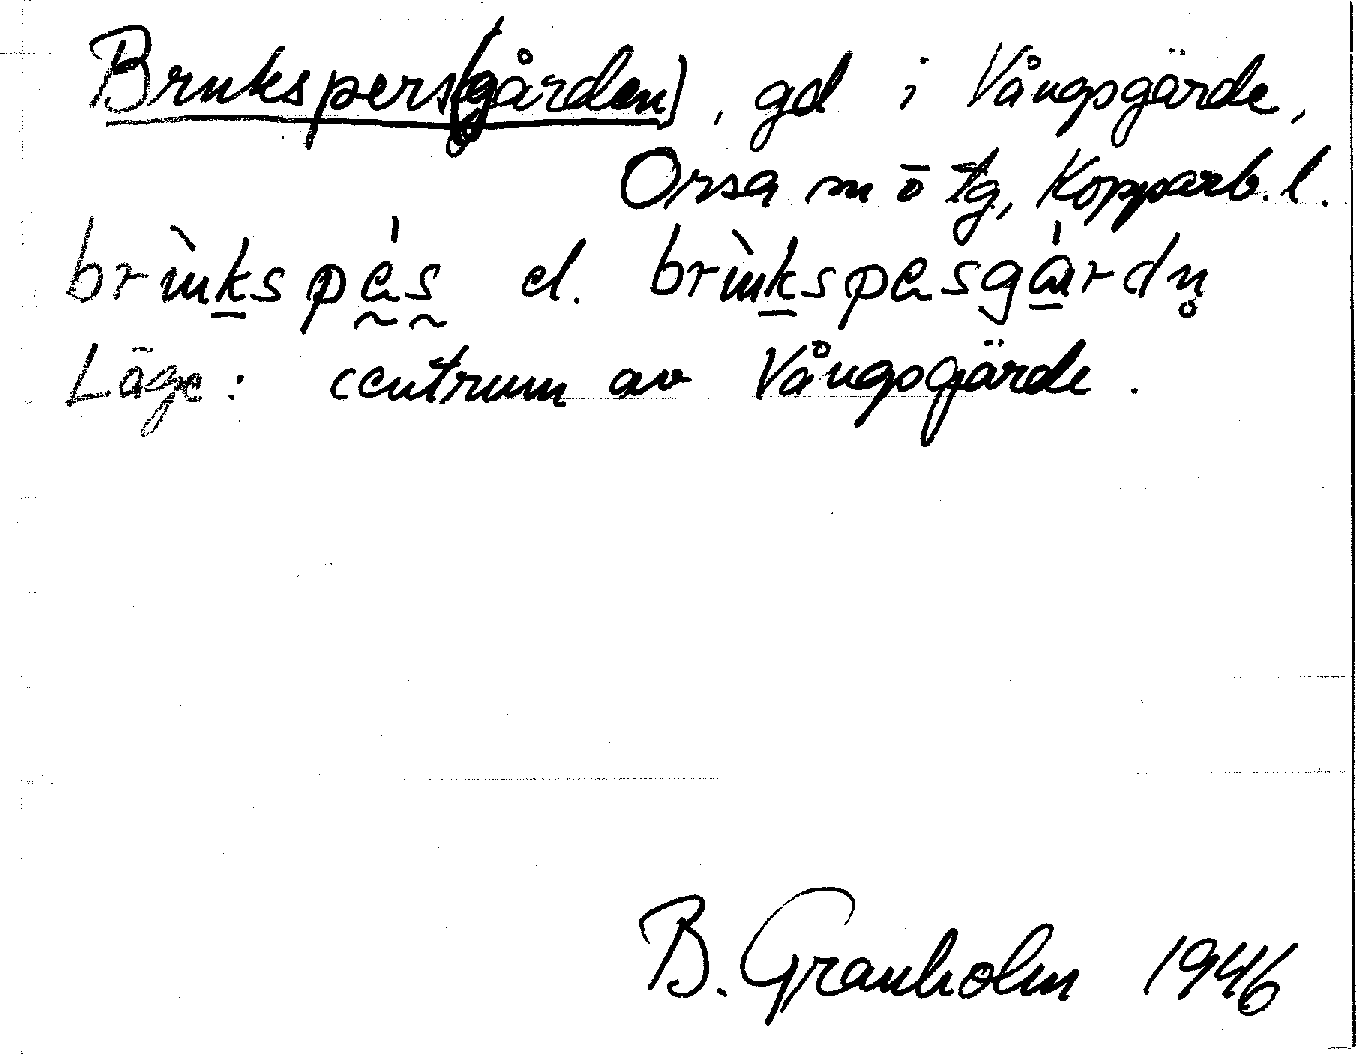 Brukspers(gården), gd i Vångsgärde,
Orsa sn ö tg, Kopparb. l.
brùkspès el. brùkspesgàrdn̥
Läge: centrum av Vångsgärde.
B. Granholm 1946